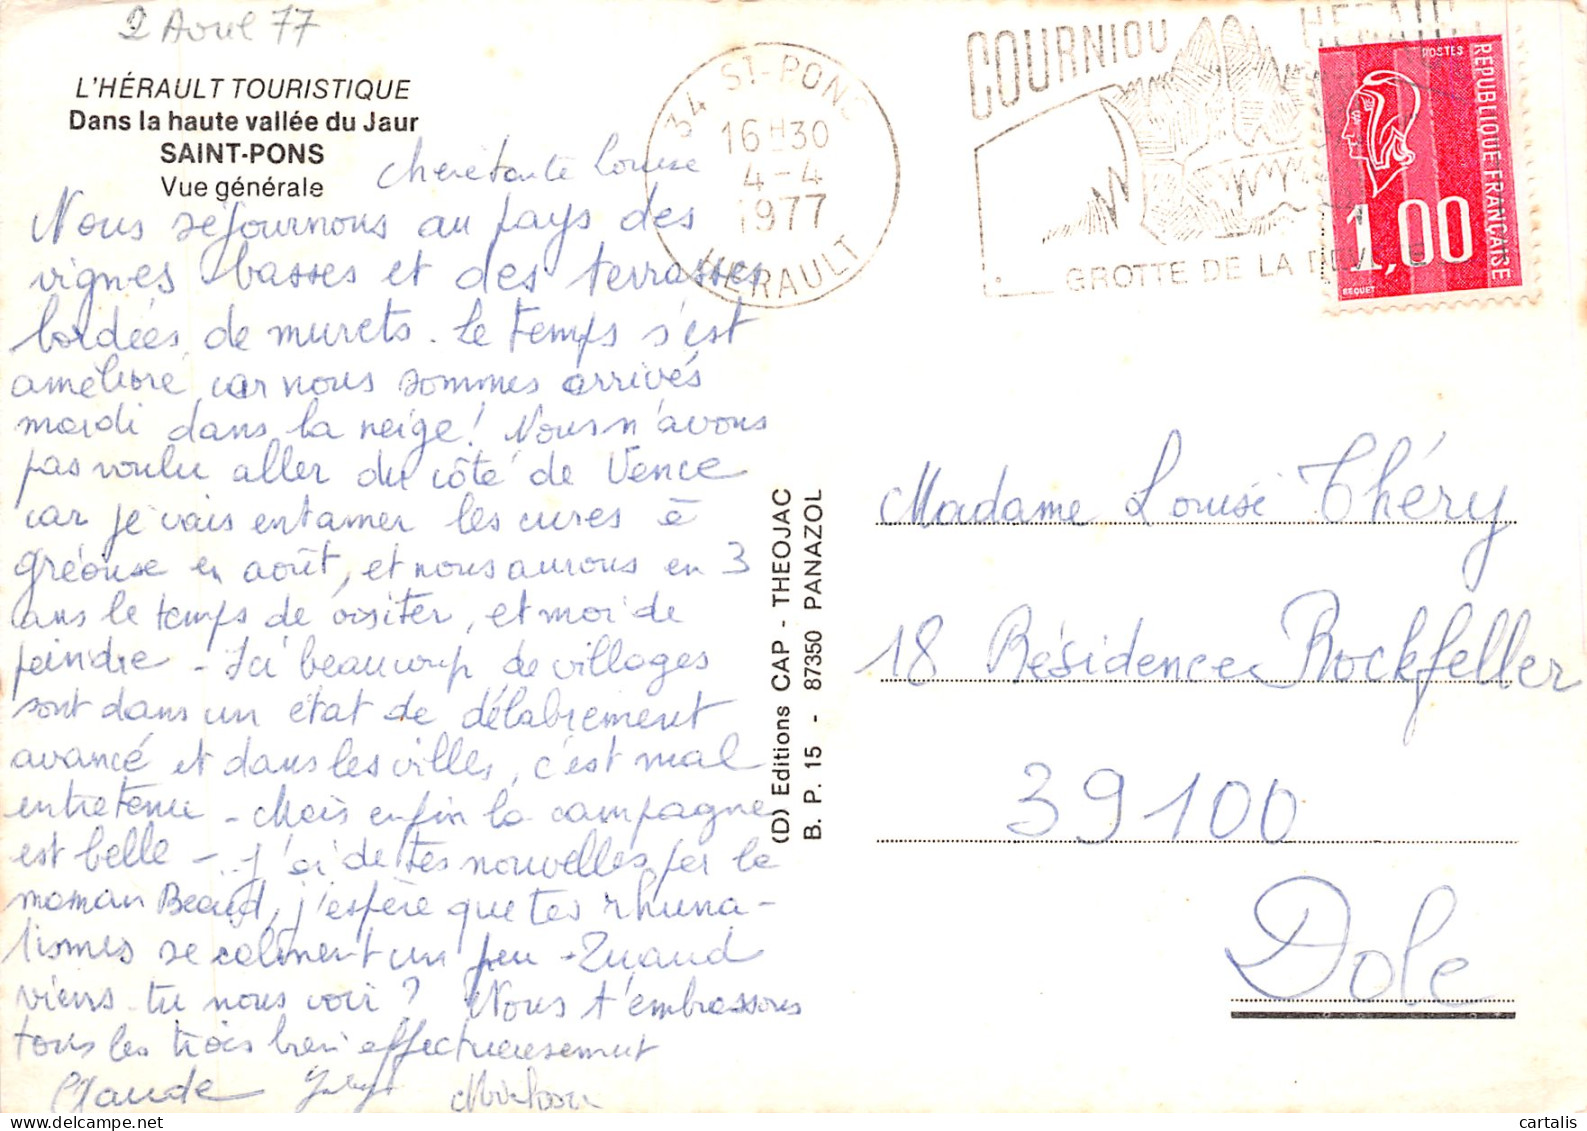 2 Avril 77
L'HÉRAULT TOURISTIQUE
Dans la haute vallée du Jaur
SAINT-PONS
Vue générale
chère tante Louise
Nous séjournons au pays des
vignes basses et des terrasses
bordées de murets. Le temps s'est
amélioré car nous sommes arrivés
mardi dans la neige! Nous n'avons
pas voulu aller du côté de Vence
car je vais entamer les cures à
gréouse en août, et nous aurons en 3
ans le temps de visiter, et moi de
peindre - Ici beaucoup de villages
sont dans un état de délabrement
avancé et dans les villes, c'est mal
entretenu - Mais enfin la campagne
est belle - J'ai de tes nouvelles par la
maman Beaud, j'espère que tes rhuma-
tismes se calment un peu - Quand
viens-tu nous voir? Nous t'embrassons
tous les trois bien affectueusement
Claude
34 ST-PONS
16H30
4-4
1977
HERAULT
COURNIOU HERAULT
GROTTE DE LA DEVEZE
POSTES
REPUBLIQUE FRANÇAISE
1,00
BEQUET
(D) Editions CAP - THEOJAC
B. P. 15 - 87350 PANAZOL
Madame Louise Théry
18 Résidence Rockfeller
39100
Dole
cartalis